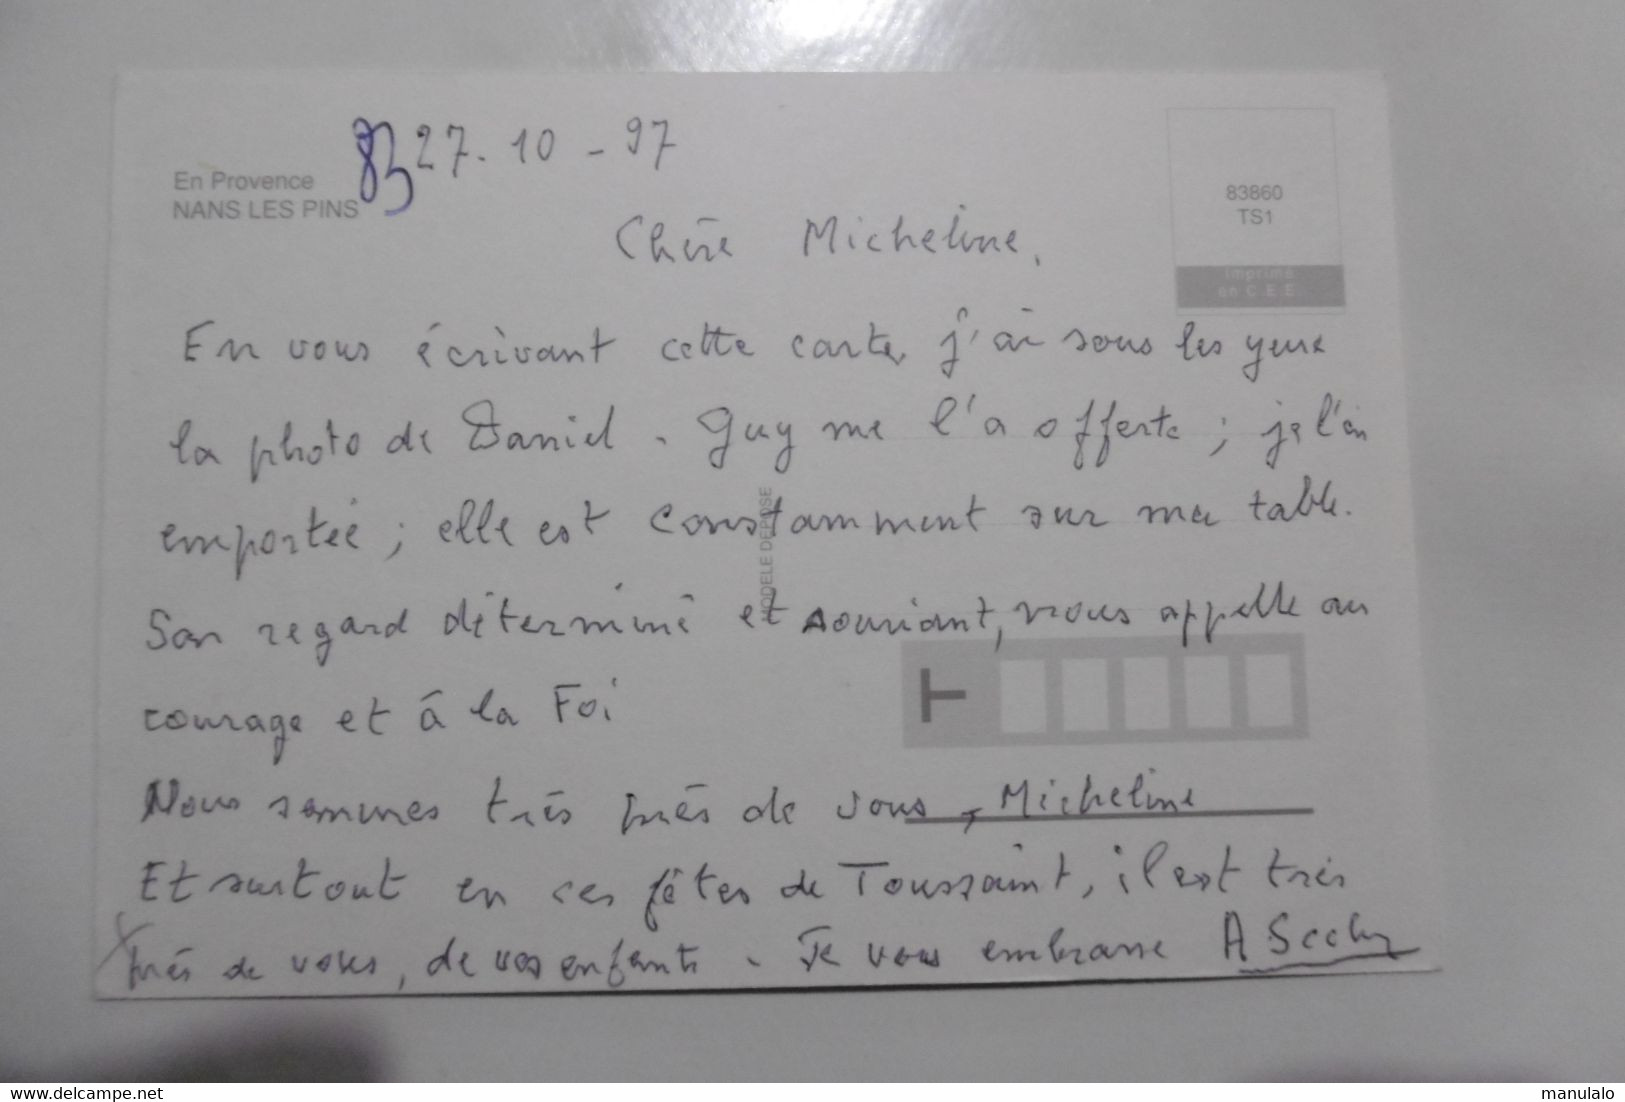 83 27. 10 - 97
En Provence
NANS LES PINS
83860
TS1
Imprimé
en C.E.E.
Chère Micheline,
En vous écrivant cette carte, j'ai sous les yeux
la photo de Daniel. Guy me l'a offerte ; je l'ai
emportée ; elle est constamment sur ma table.
MODELE DEPOSE
Son regard déterminé et souriant, nous appelle au
courage et à la Foi
T
Nous sommes très près de vous, Micheline
Et surtout en ces fêtes de Toussaint, il est très
près de vous, de vos enfants. Je vous embrasse A
www.delcampe.net
manulalo